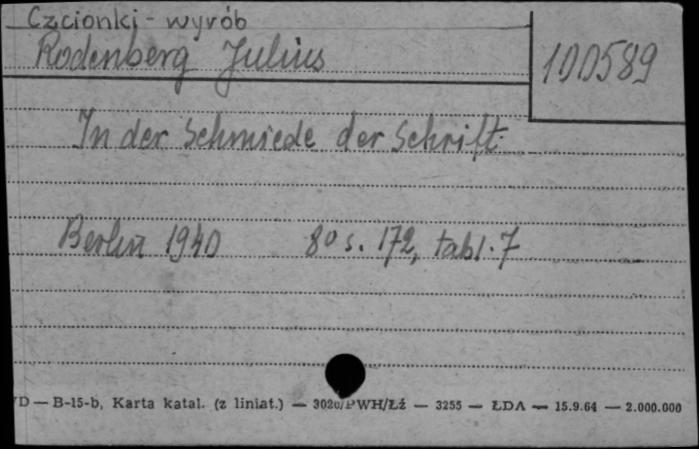 Czcionki - wyrób
Rodenberg Julius
100589
In der Schmiede der Schrift.
Berlin 1940 8º s. 172, tabl. 7
D — B-15-b, Karta katal. (z liniat.) — 3020/PWH/Łź — 3255 — ŁDA — 15.9.64 — 2.000.000